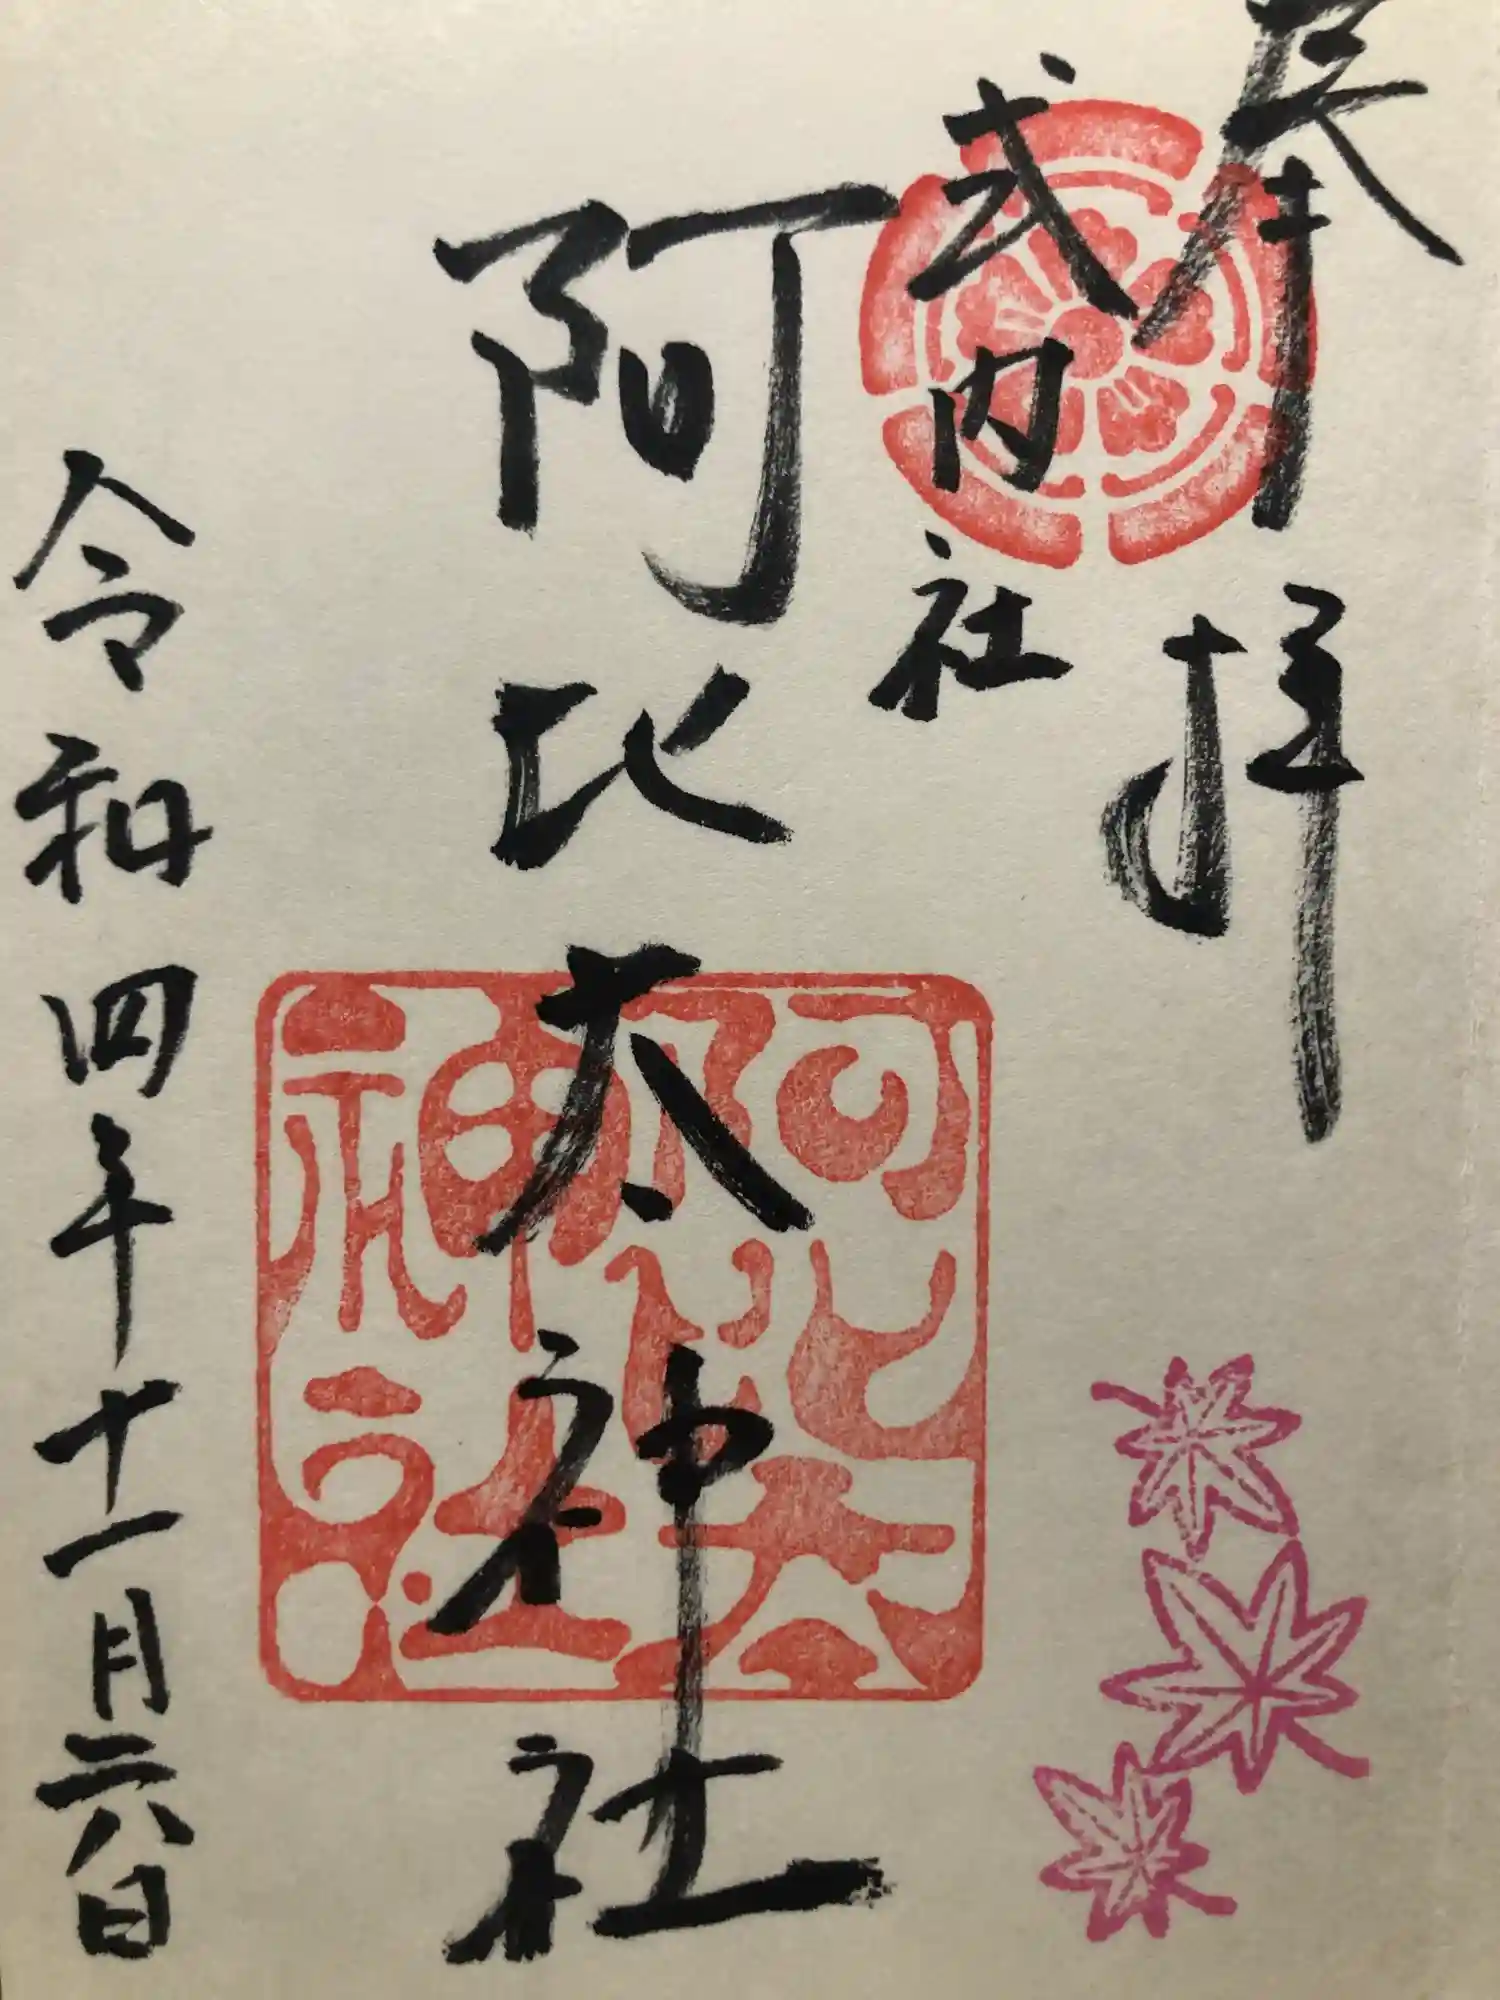 奉拝
式内社
阿比太神社
阿比太神社
令和四年十一月六日